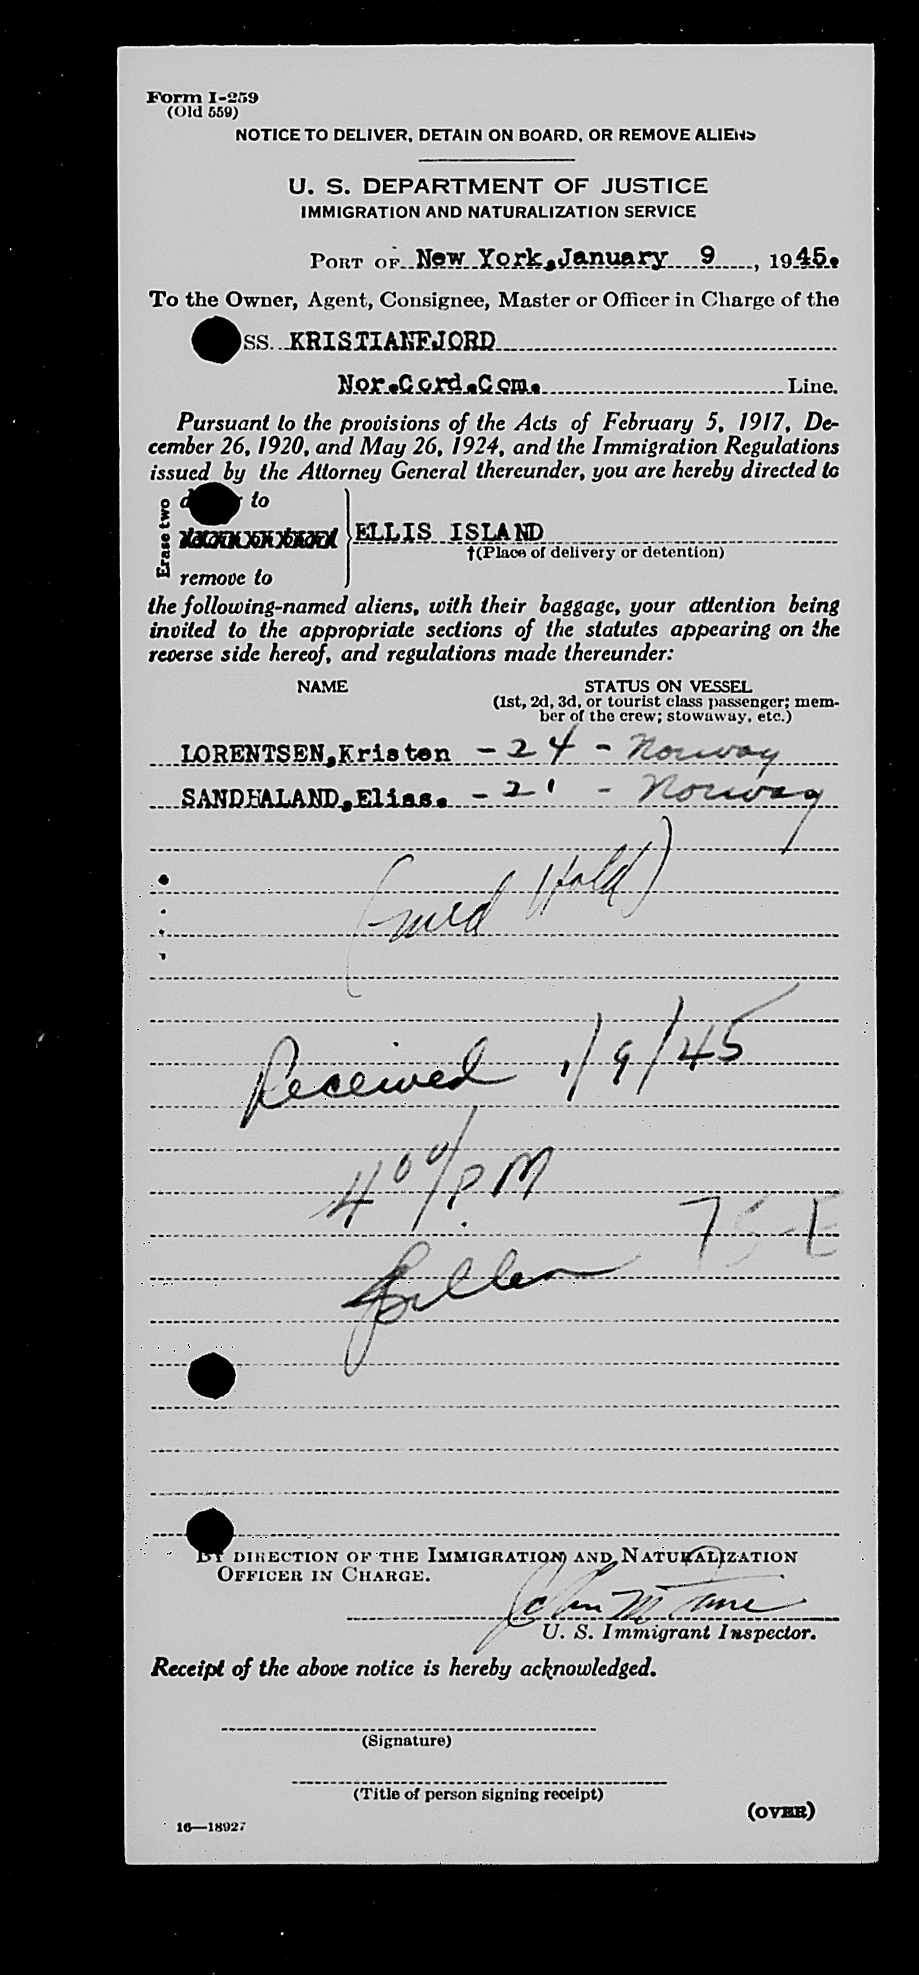 Form I-259
(Old 559)
NOTICE TO DELIVER, DETAIN ON BOARD, OR REMOVE ALIENS
U. S. DEPARTMENT OF JUSTICE
IMMIGRATION AND NATURALIZATION SERVICE
PORT OF New York, January 9, 1945.
To the Owner, Agent, Consignee, Master or Officer in Charge of the
SS. KRISTIANFJORD
Nor.Cord.Com. Line.
Pursuant to the provisions of the Acts of February 5, 1917, De-
cember 26, 1920, and May 26, 1924, and the Immigration Regulations
issued by the Attorney General thereunder, you are hereby directed to
Erase two
to
ELLIS ISLAND
†(Place of delivery or detention)
remove to
the following-named aliens, with their baggage, your attention being
invited to the appropriate sections of the statutes appearing on the
reverse side hereof, and regulations made thereunder:
NAME STATUS ON VESSEL
(1st, 2d, 3d, or tourist class passenger; mem-
ber of the crew; stowaway, etc.)
LORENTSEN,Kristen - 24 - Norway
SANDHALAND,Elias. - 21 - Norway
(med Hold)
Received 1/9/45
4 00/PM
BY DIRECTION OF THE IMMIGRATION AND NATURALIZATION
OFFICER IN CHARGE.
John M
U. S. Immigrant Inspector.
Receipt of the above notice is hereby acknowledged.
(Signature)
(Title of person signing receipt)
(OVER)
16—18927